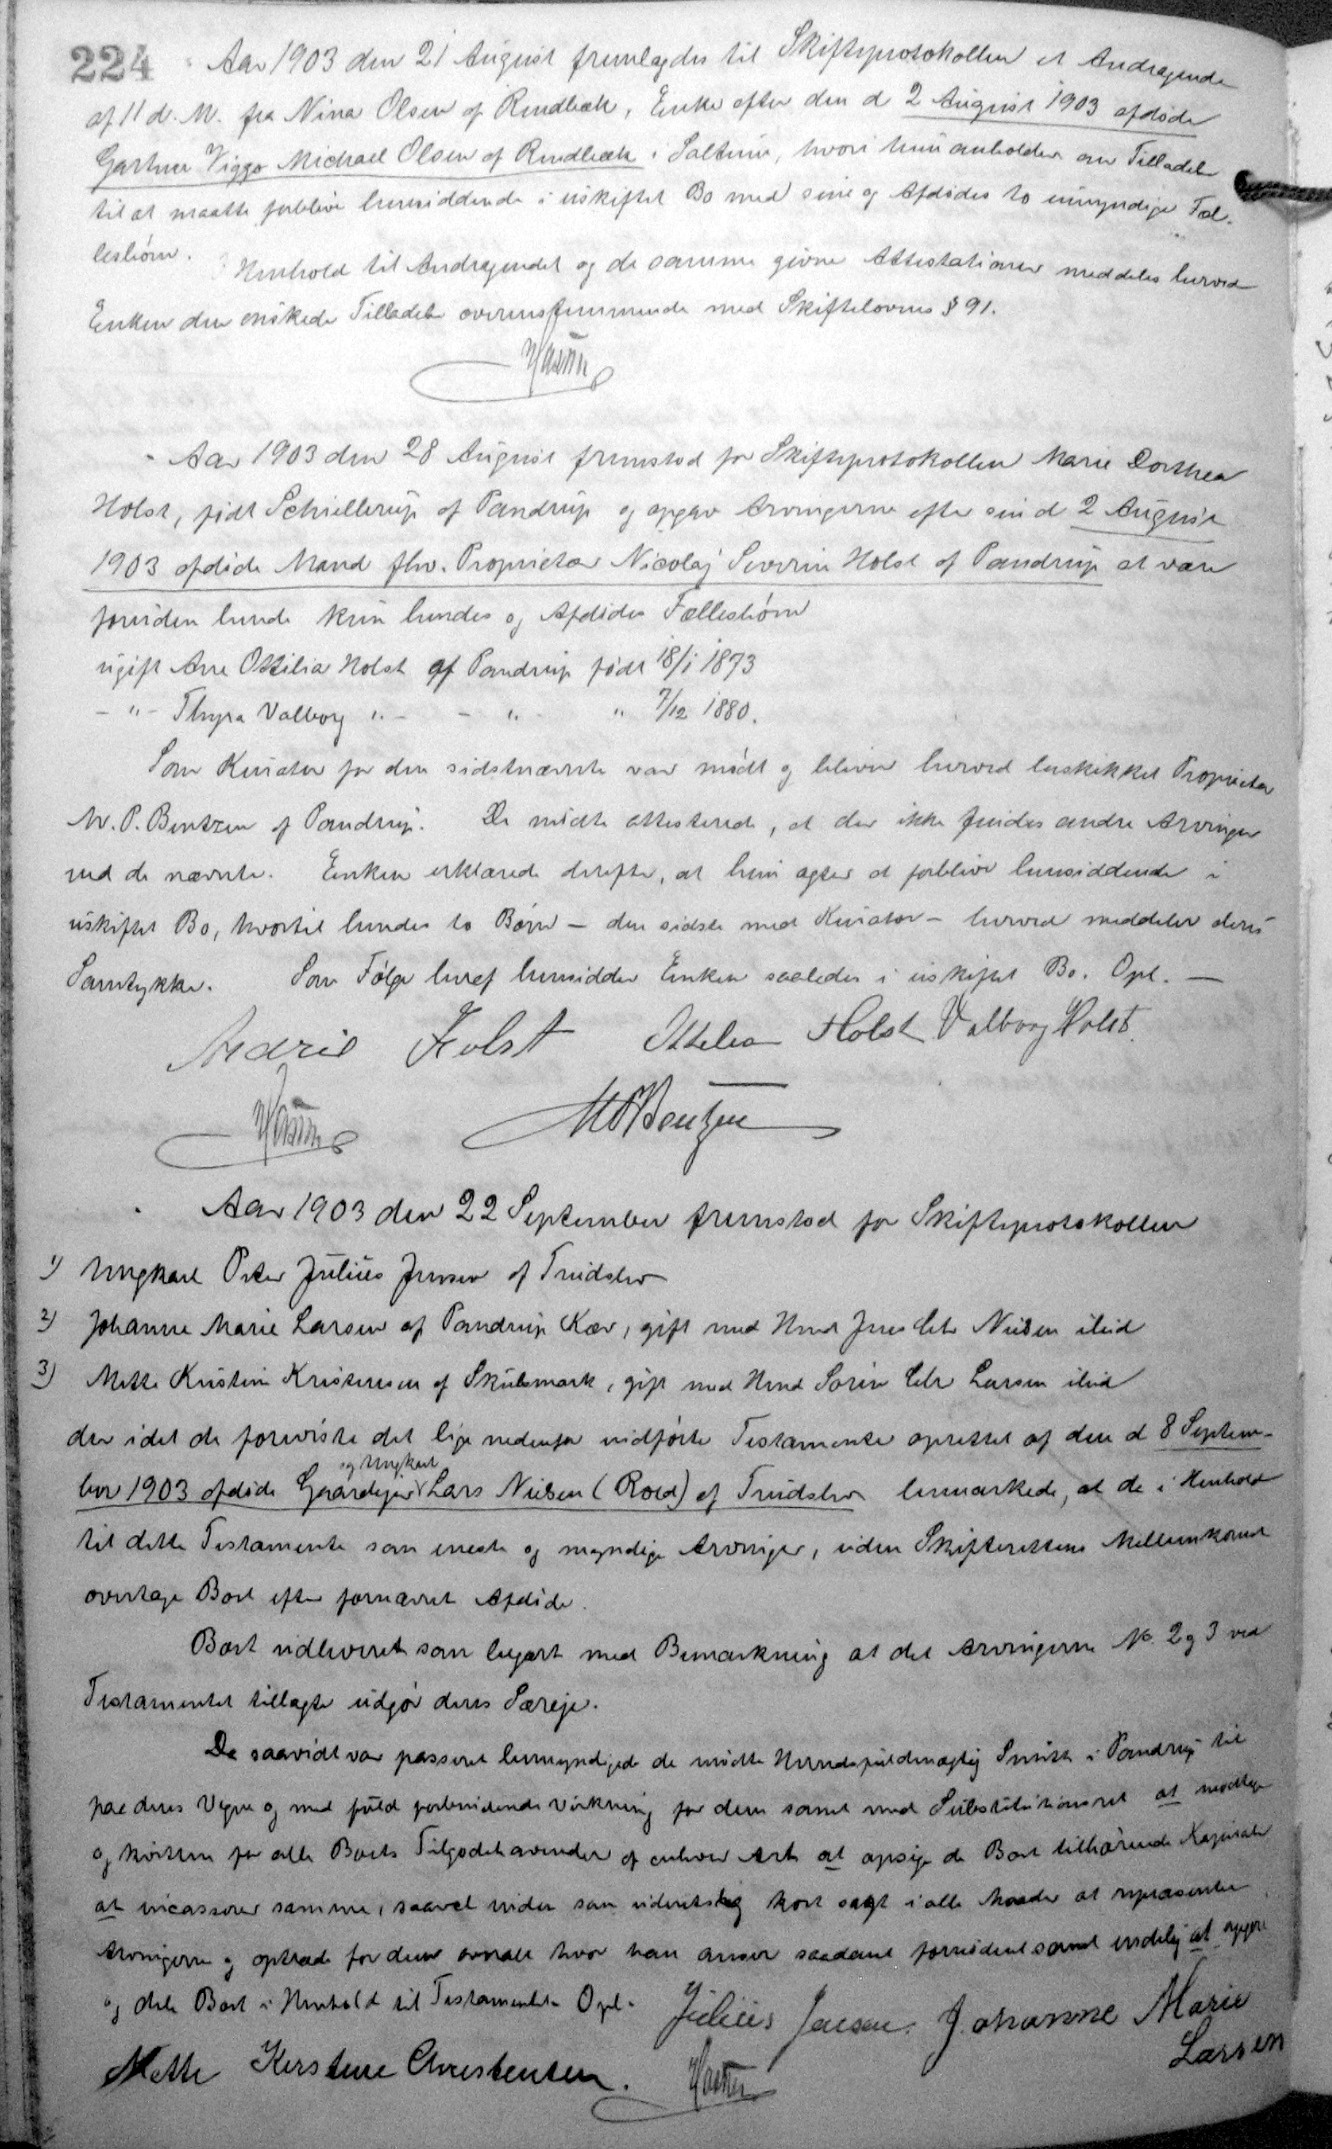 224
Aar 1903 den 21 August fremlagdes til Skifteprotokollen et Andragende
af 11 d. M. fra Nina Olsen af Rendbæk, Enke efter den d 2 August 1903 afdøde
Gartner Viggo Michael Olsen af Rendbæk i Saltum, hvori hun anholder om Tilladelse
til at maatte forblive hensiddende i uskiftet Bo med sine og Afdødes to umyndige Fæl-
lesbørn.
I Henhold til Andragendet og de samme givne Attestationer meddeles herved
Enken den ønskede Tilladelse overensstemmende med Skiftelovens § 91.
Aar 1903 den 28 August fremstod for Skifteprotokollen Marie Dorthea
Holst, født Schiellerup af Pandrup og opgav Arvingerne efter sin d 2 August
1903 afdøde Mand fhv. Proprietær Nicolaj Severin Holst af Pandrup at være
foruden hende kun hendes og Afdødes Fællesbørn
ugift Ane Ottilia Holst af Pandrup født 18/1 1873
- " - Thyra Valborg " - - " - " 7/12 1880.
Som Kurator for den sidstnævnte var mødt og bliver herved beskikket Proprietær
M. P. Bentzen af Pandrup. De mødte attesterede, at der ikke findes andre Arvinger
end de nævnte. Enken erklærede derefter, at hun agter at forblive hensiddende i
uskiftet Bo, hvortil hendes to Børn - den sidste med Kurator - herved meddeler deres
Samtykke. Som Følge heraf hensidder Enken saaledes i uskiftet Bo. Opl. —
Holst Ottilia Holst Valborg Holst.
M P Bentzen
Aar 1903 den 22 September fremstod for Skifteprotokollen
1) Ungkarl Peter Julius Jensen af Trudslev
2) Johanne Marie Larsen af Pandrup Kær, gift med Hmd Jens Chr Nielsen ibid
3) Mette Kristine Kristensen af Skulsmark, gift med Hmd Søren Chr Larsen ibid
der idet de foreviste det lige nedenfor indførte Testamente oprettet af den d 8 Septem-
og Ungkarl
ber 1903 afdøde Gaardejer Lars Nielsen (Roed) af Trudslev bemærkede, at de i Henhold
til dette Testamente som eneste og myndige Arvinger, uden Skifterettens Mellemkomst
overtage Boet efter fornævnte Afdøde.
Boet udleveret som begært med Bemærkning at det Arvingerne No. 2 og 3 ved
Testamentet tillagte udgør deres Særeje.
De saavidt var passeret bemyndigede de mødte Herredsfuldmægtig Smith i Pandrup til
paa deres Vegne og med fuld forbindende Virkning for dem samt med Substitutionsret at modtage
og kvittere for alle Boets Tilgodehavender af enhver Art at opsige de Boet tilhørende Kapitaler
at incassere samme, saavel inden som udenretslig kort sagt i alle Maader at repræsentere
Arvingerne og optræde for dem overalt hvor han anser saadant fornødent samt endelig at opgøre
og dele Boet i Henhold til Testamentet. Opl.
Julius Jensen. Johanne Marie
Larsen
Mette Kerstine Christensen.